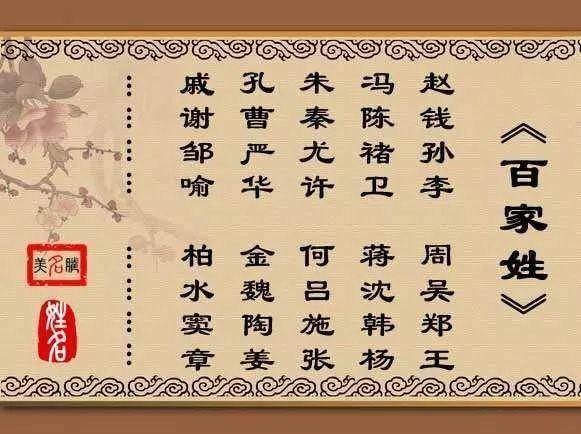 《百家姓》
赵钱孙李
周吴郑王
冯陈褚卫
蒋沈韩杨
朱秦尤许
何吕施张
孔曹严华
金魏陶姜
戚谢邹喻
柏水窦章
……
……
美名腾
姓名